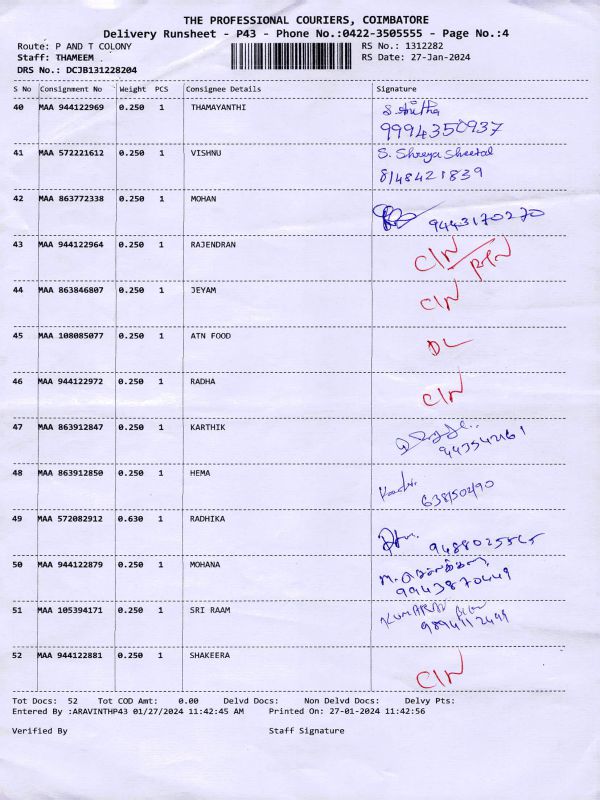 THE PROFESSIONAL COURIERS, COIMBATORE
Delivery Runsheet - P43 - Phone No.:0422-3505555 - Page No.:4
Route: P AND T COLONY RS No.: 1312282
Staff: THAMEEM RS Date: 27-Jan-2024
DRS No.: DCJB131228204
S No Consignment No Weight PCS Consignee Details Signature
40 MAA 944122969 0.250 1 THAMAYANTHI
9994350937
41 MAA 572221612 0.250 1 VISHNU S. Shreya Sheetal
8148421839
42 MAA 863772338 0.250 1 MOHAN 9443170270
43 MAA 944122964 0.250 1 RAJENDRAN
44 MAA 863846807 0.250 1 JEYAM
45 MAA 108085077 0.250 1 ATN FOOD DL
46 MAA 944122972 0.250 1 RADHA
47 MAA 863912847 0.250 1 KARTHIK
48 MAA 863912850 0.250 1 HEMA
49 MAA 572082912 0.630 1 RADHIKA
50 MAA 944122879 0.250 1 MOHANA
9943870449
51 MAA 105394171 0.250 1 SRI RAAM
52 MAA 944122881 0.250 1 SHAKEERA
Tot Docs: 52 Tot COD Amt: 0.00 Delvd Docs: Non Delvd Docs: Delvy Pts:
Entered By :ARAVINTHP43 01/27/2024 11:42:45 AM Printed On: 27-01-2024 11:42:56
Verified By Staff Signature